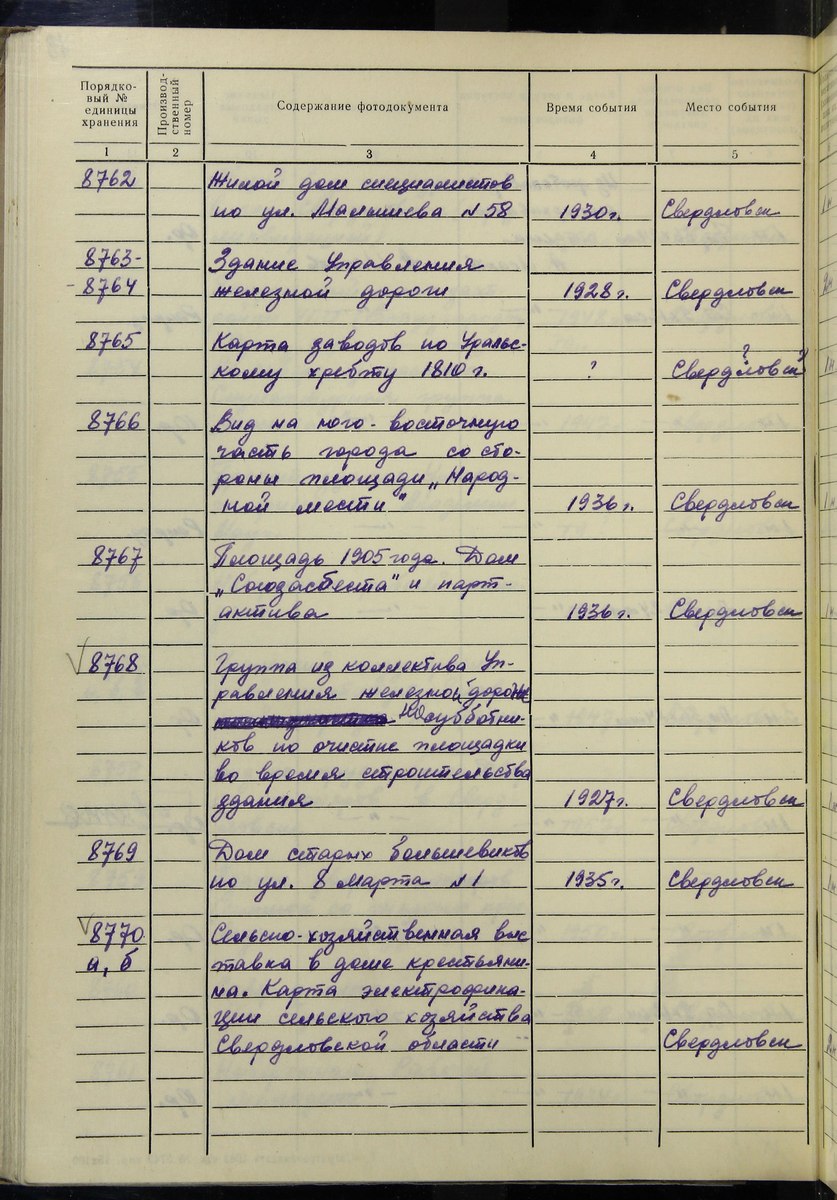 Порядко-
вый №
единицы
хранения
Производ-
ственный
номер
Содержание фотодокумента
Время события
Место события
1 2 3 4 5
8762 Жилой дом специалистов
по ул. Малышева №58 1930г. Свердловск
8763- Здание Управления
-8764 железной дороги 1928г. Свердловск
8765 Карта заводов по Ураль-
скому хребту 1810г. ? Свердловск ?
8766 Вид на юго-восточную
часть города со сто-
роны площади „Народ-
ной мести" 1936г. Свердловск
8767 Площадь 1905 года. Дом
„Союзасбеста" и парт-
актива 1936г. Свердловск
8768 Группа из коллектива Уп-
равления железной дороги
на субботни-
ков по очистке площадки
во время строительства
здания 1927г. Свердловск
8769 Дом старых большевиков
по ул. 8 Марта №1 1935г. Свердловск
8770 Сельско-хозяйственная выс
а, б тавка в доме крестьяни-
на. Карта электрофика-
ции сельского хозяйства
Свердловской области Свердловск